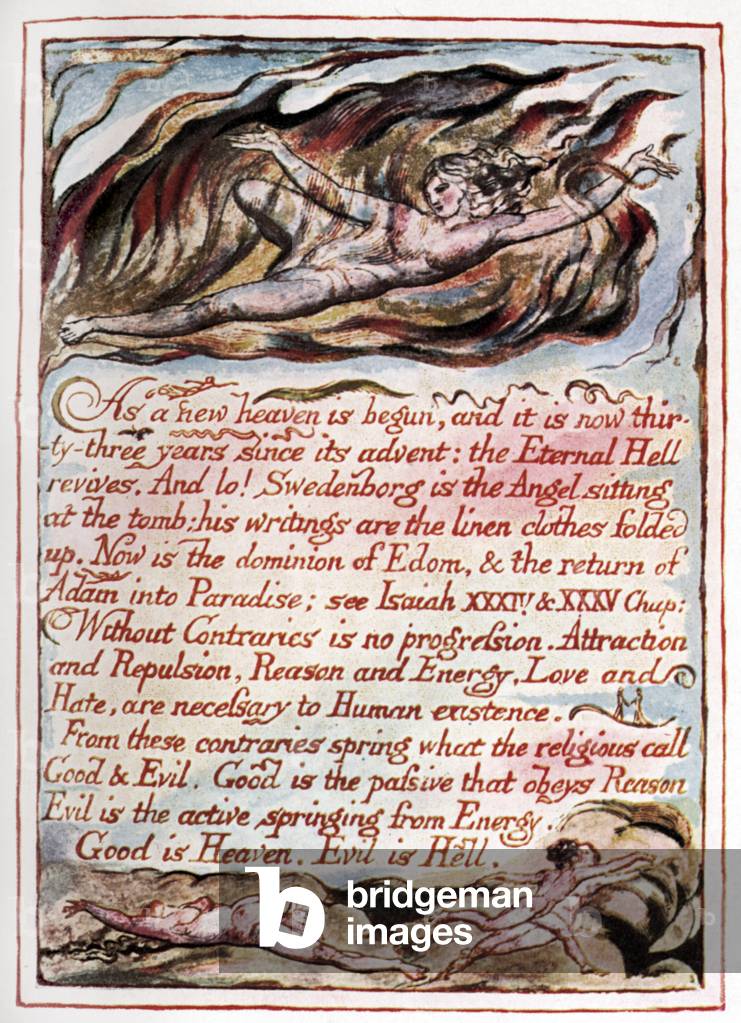 As a new heaven is begun, and it is now thir-
-ty-three years since its advent: the Eternal Hell
revives. And lo! Swedenborg is the Angel sitting
at the tomb: his writings are the linen clothes folded
up. Now is the dominion of Edom, & the return of
Adam into Paradise; see Isaiah XXXIV & XXXV Chap:
Without Contraries is no progreſsion. Attraction
and Repulsion, Reason and Energy, Love and
Hate, are neceſsary to Human existence.
From these contraries spring what the religious call
Good & Evil. Good is the paſsive that obeys Reason
Evil is the active springing from Energy.
Good is Heaven. Evil is Hell.
b bridgeman
images